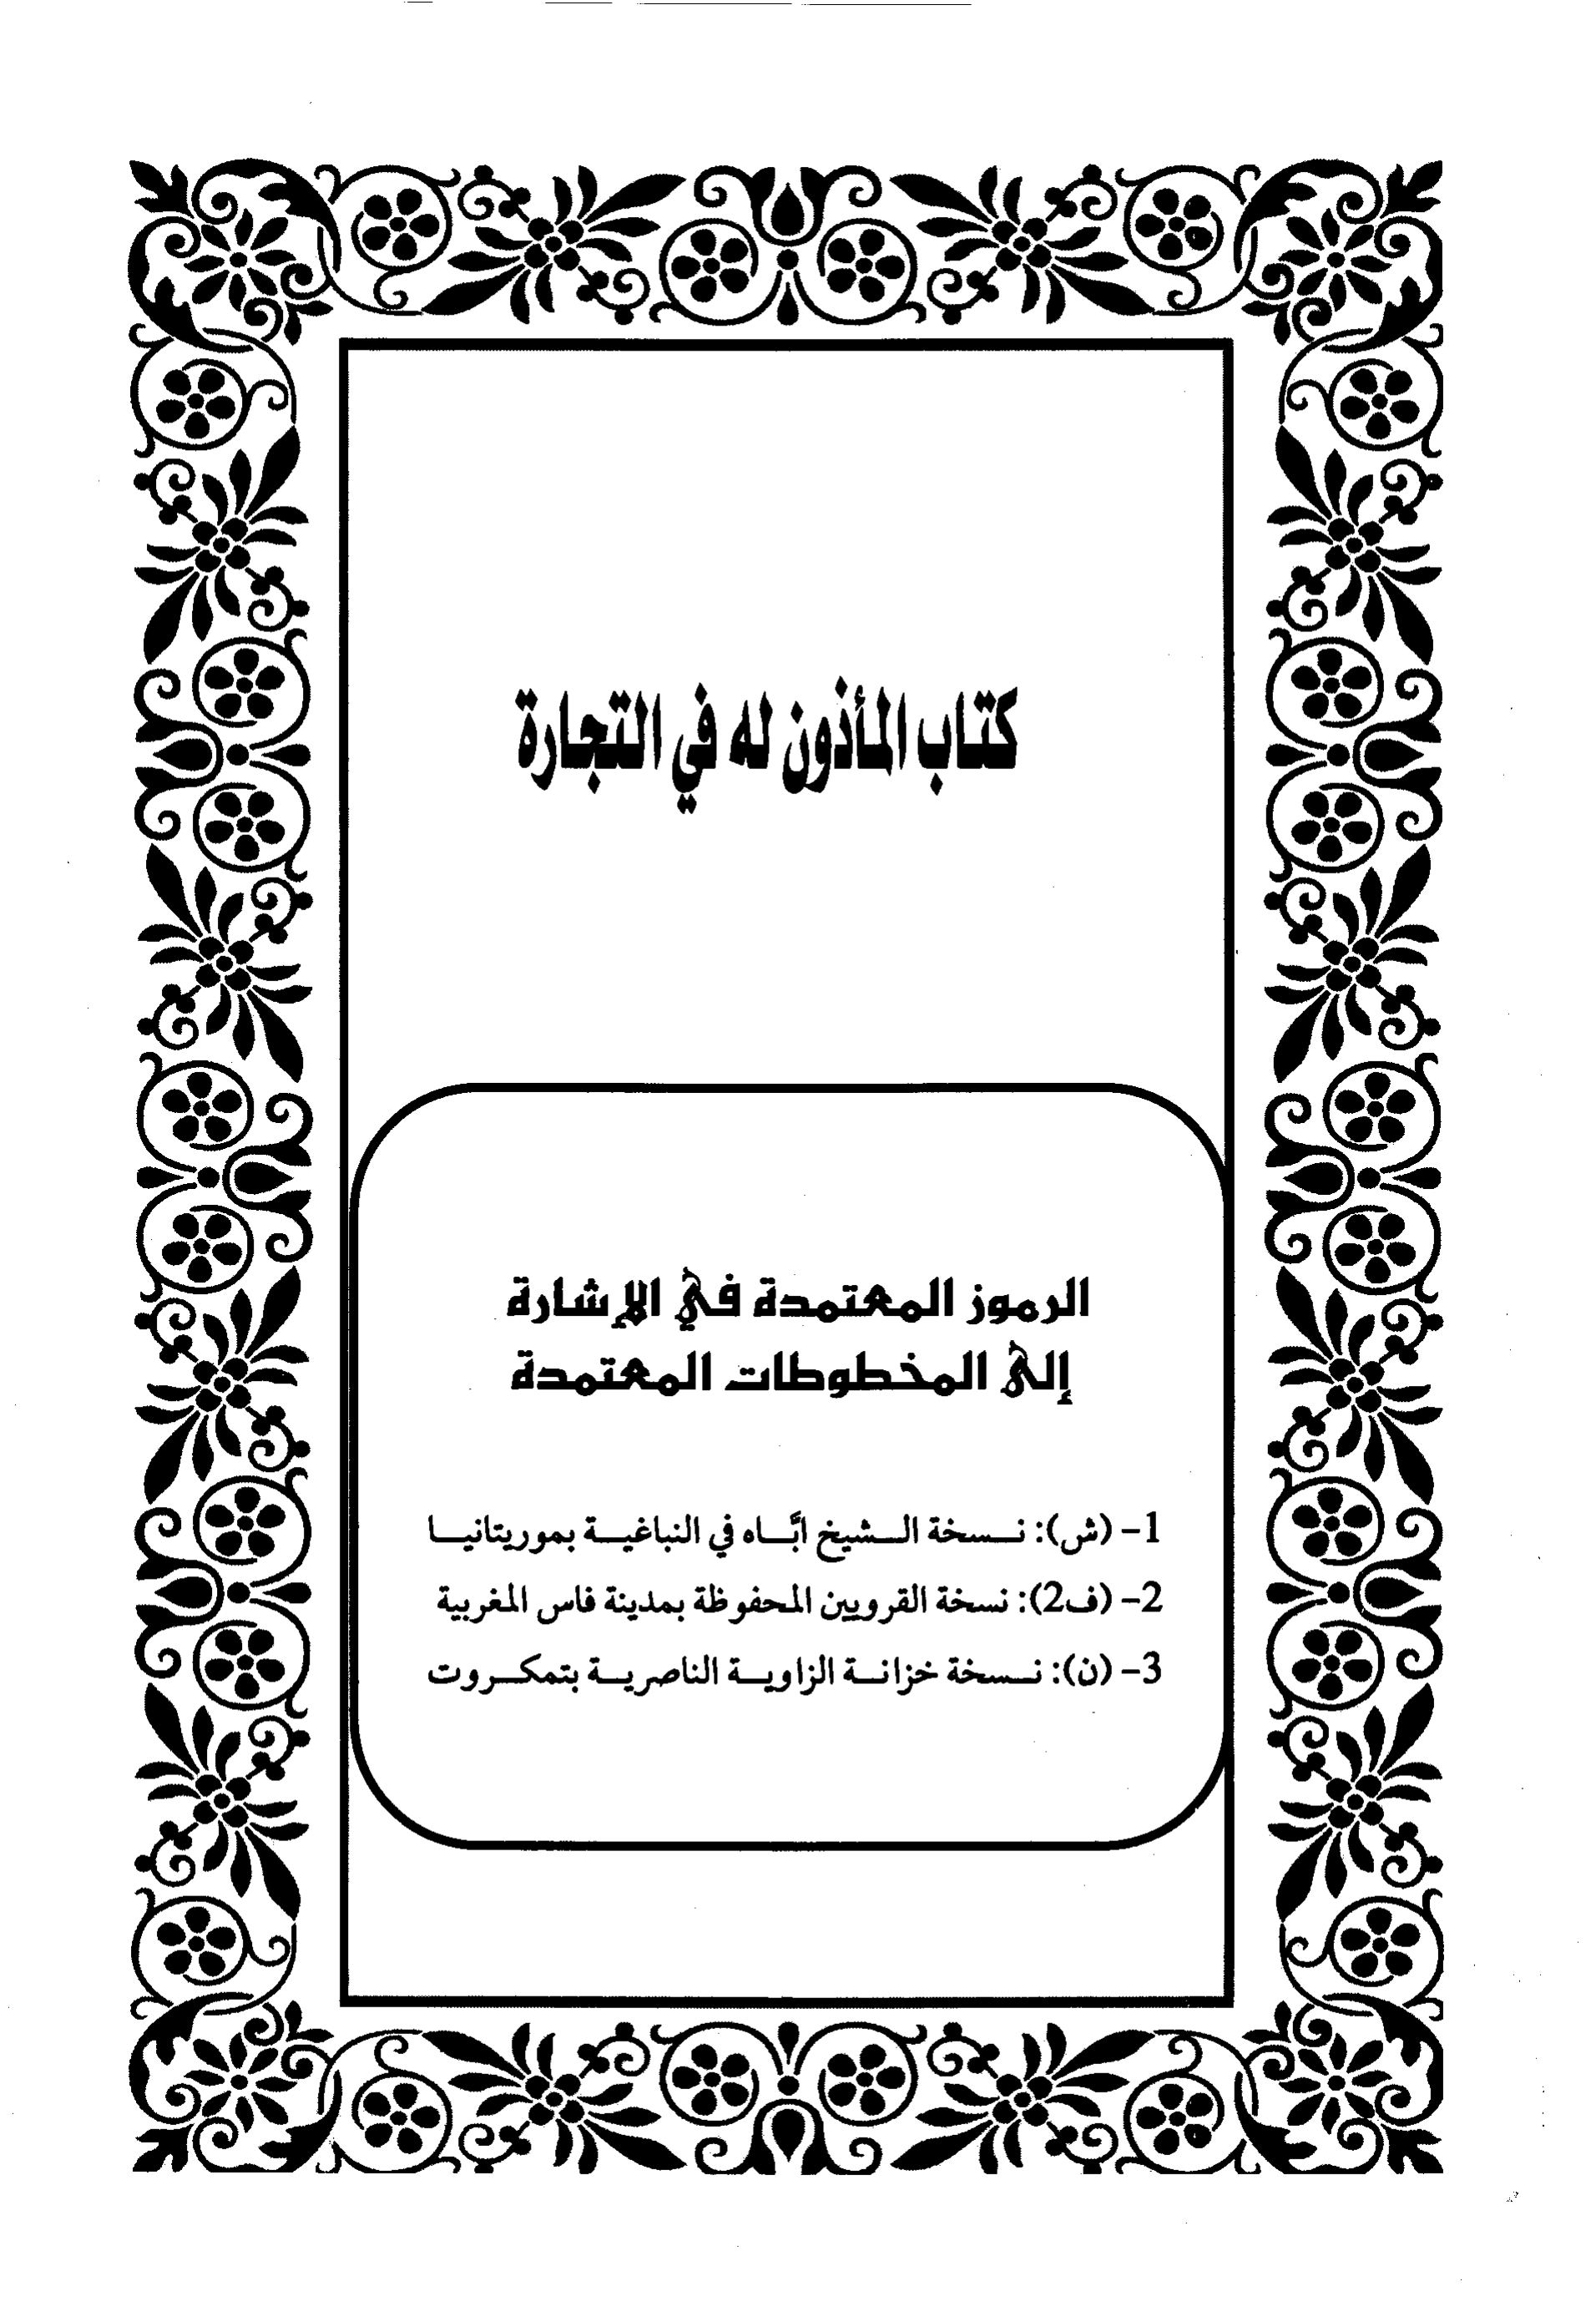 كتاب المأذون له في التجارة
الرموز المعتمدة في الإشارة
إلى المخطوطات المعتمدة
1- (ش): نسخة الشيخ ابَّاه في النباغية بموريتانيا
2- (ف2): نسخة القرويين المحفوظة بمدينة فاس المغربية
3- (ن): نسخة خزانة الزاوية الناصرية بتمكروت